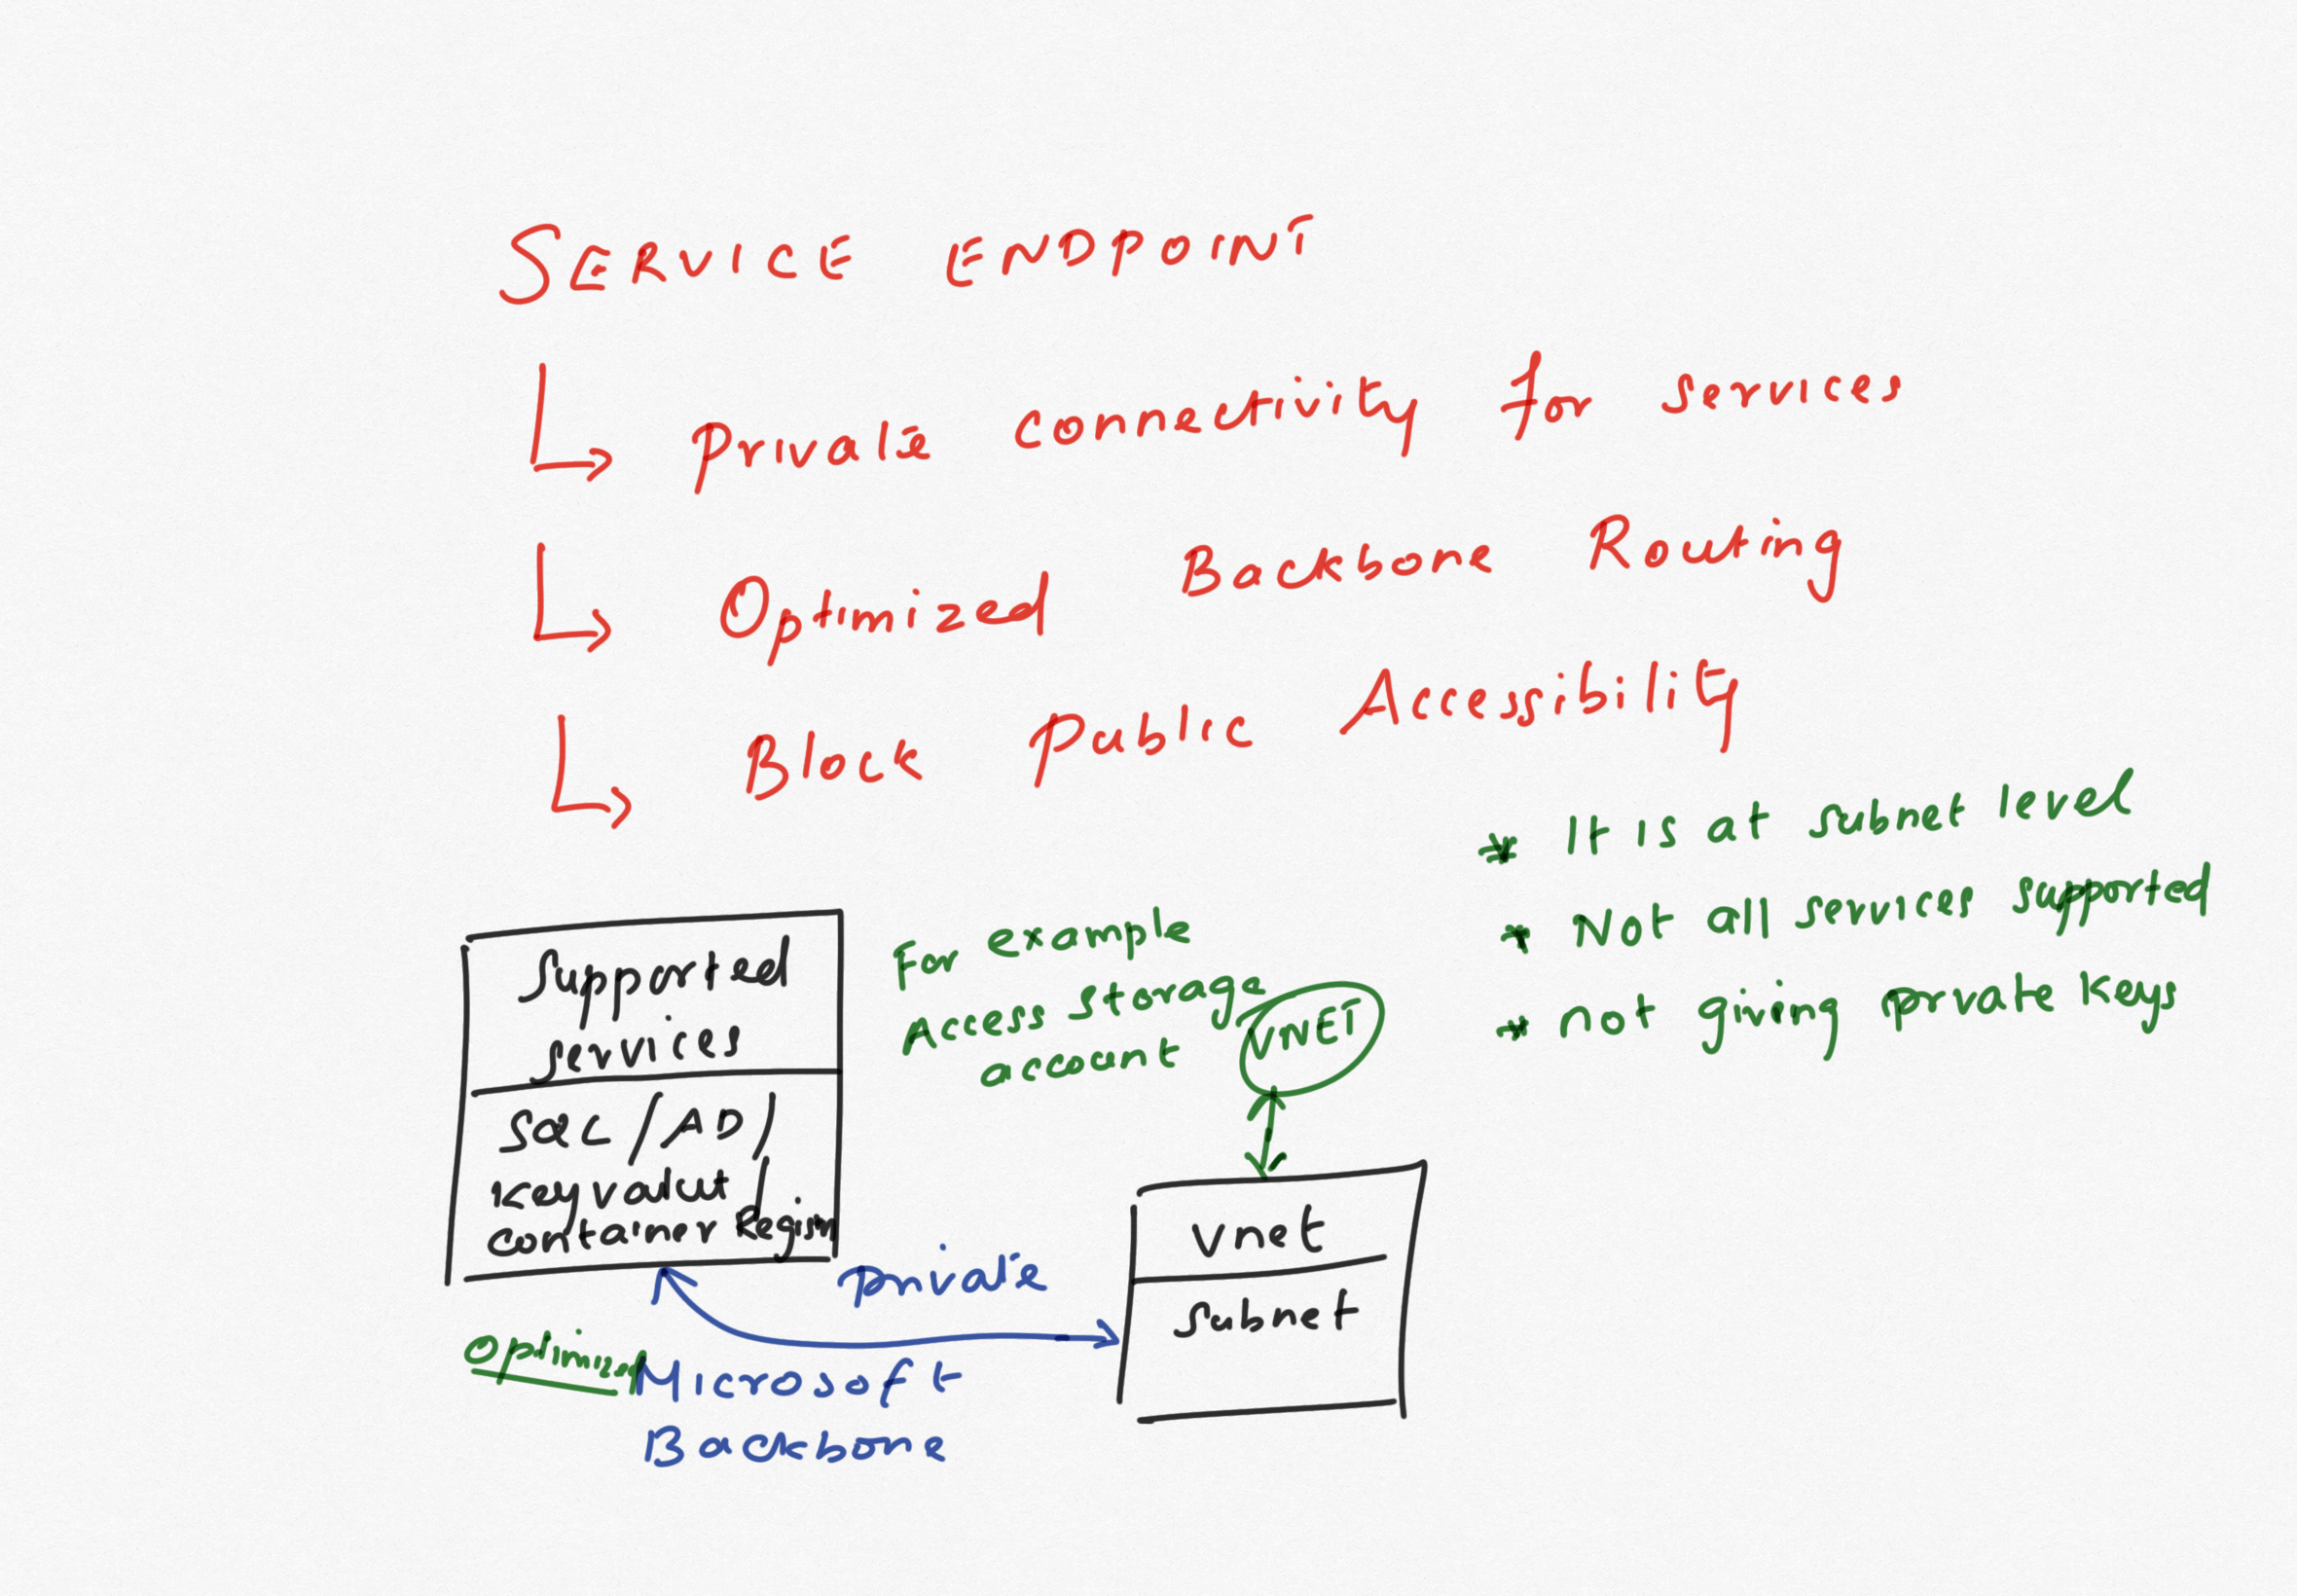 SERVICE ENDPOINT
Private connectivity for services
Optimized Backbone Routing
Block Public Accessibility
* It is at subnet level
* Not all services supported
* not giving private keys
Supported
services
SQL / AD /
Key valut /
container
For example
Access storage
account
VNET
vnet
subnet
private
Optimized
Microsoft
Backbone